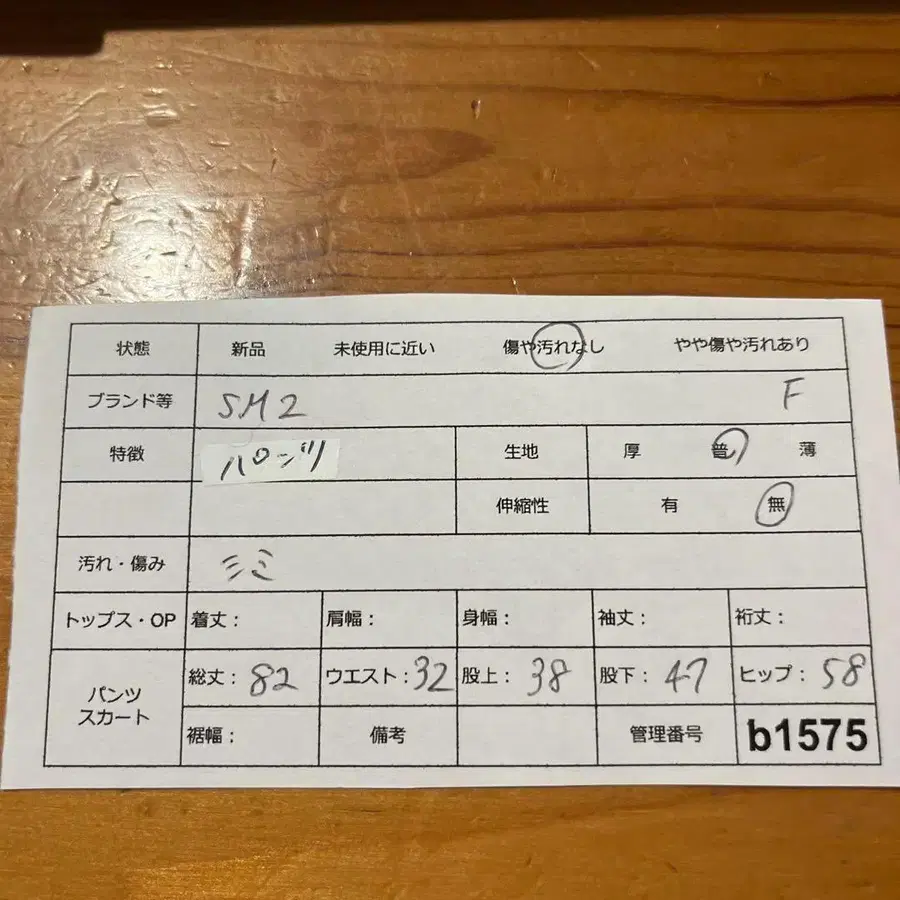 状態 新品 未使用に近い 傷や汚れなし やや傷や汚れあり
ブランド等 SM2 F
特徴 パンツ 生地 厚 普 薄
伸縮性 有 無
汚れ・傷み シミ
トップス・OP 着丈： 肩幅： 身幅： 袖丈： 裄丈：
パンツ スカート 総丈：82 ウエスト：32 股上：38 股下：47 ヒップ：58
裾幅： 備考 管理番号 b1575